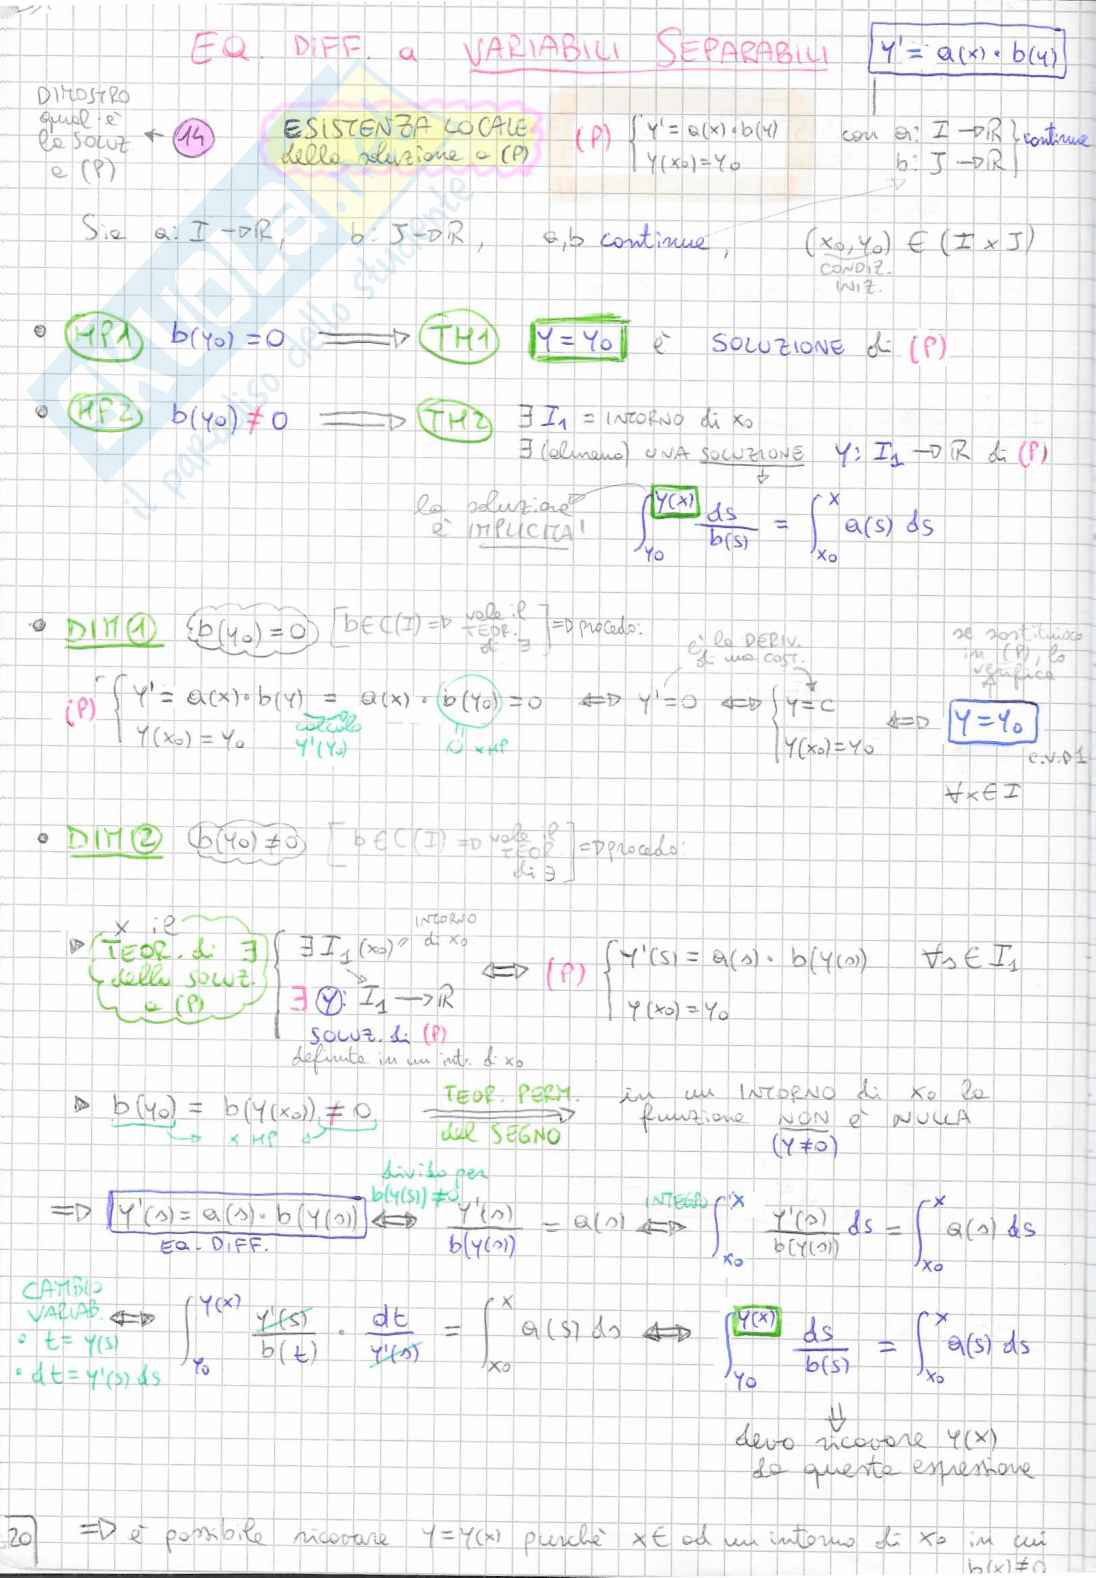 EQ. DIFF. a VARIABILI SEPARABILI
y' = a(x) · b(y)
DIMOSTRO
qual è
la SOLUZ
a (P)
← 14
ESISTENZA LOCALE
della soluzione a (P)
(P) { y' = a(x)·b(y)
y(x0) = y0
con a: I → R
b: J → R } continue
Sia a: I → R, b: J → R, a,b continue, (x0,y0) ∈ (I x J)
CONDIZ.
INIZ.
• HP1 b(y0) = 0 ⟹ TH1 y = y0 è SOLUZIONE di (P)
• HP2 b(y0) ≠ 0 ⟹ TH2 ∃ I1 = INTORNO di x0
∃ (almeno) UNA SOLUZIONE y: I1 → R di (P)
la soluzione
è IMPLICITA!
∫_{y0}^{y(x)} ds/b(s) = ∫_{x0}^{x} a(s) ds
• DIM 1 b(y0) = 0 [b∈C(I) ⇒ vale il TEOR. di ∃] ⇒ procedo:
è la DERIV.
di una COST.
se sostituisco
in (P), lo
verifica
(P) { y' = a(x)·b(y) = a(x)·b(y0) = 0 ⟺ y' = 0 ⟺ { y = c
y(x0) = y0
calcolo
y'(y0)
0 x HP
y(x0) = y0
⟺ y = y0
C.V.D 1
∀x ∈ I
• DIM 2 b(y0) ≠ 0 [b∈C(I) ⇒ vale il TEOR. di ∃] ⇒ procedo:
▷ x il
TEOR. di ∃
della soluz.
a (P)
{ ∃ I1 (x0) INTORNO di x0
∃ y: I1 → R
SOLUZ. di (P)
definita in un int. di x0
⟺ (P) { y'(s) = a(s) · b(y(s)) ∀s ∈ I1
y(x0) = y0
▷ b(y0) = b(y(x0)) ≠ 0
x HP
TEOR. PERM.
del SEGNO
in un INTORNO di x0 la
funzione NON è NULLA
(y≠0)
divido per
b(y(s)) ≠ 0
INTEGRO
⇒ y'(s) = a(s)·b(y(s)) ⟺ y'(s)/b(y(s)) = a(s) ⟺ ∫_{x0}^{x} y'(s)/b(y(s)) ds = ∫_{x0}^{x} a(s) ds
EQ. DIFF.
CAMBIO
VARIAB.
• t = y(s)
• dt = y'(s) ds
⟺ ∫_{y0}^{y(x)} y'(s)/b(t) · dt/y'(s) = ∫_{x0}^{x} a(s) ds ⟺ ∫_{y0}^{y(x)} ds/b(s) = ∫_{x0}^{x} a(s) ds
⇓
devo ricavare y(x)
da questa espressione
20
⇒ è possibile ricavare y = y(x) purchè x∈ ad un intorno di x0 in cui
b(x) ≠ 0
il paradiso dello studente